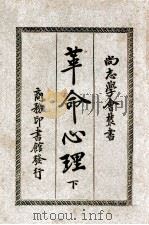 尚志學會叢書
革命心理 下
商務印書館發行